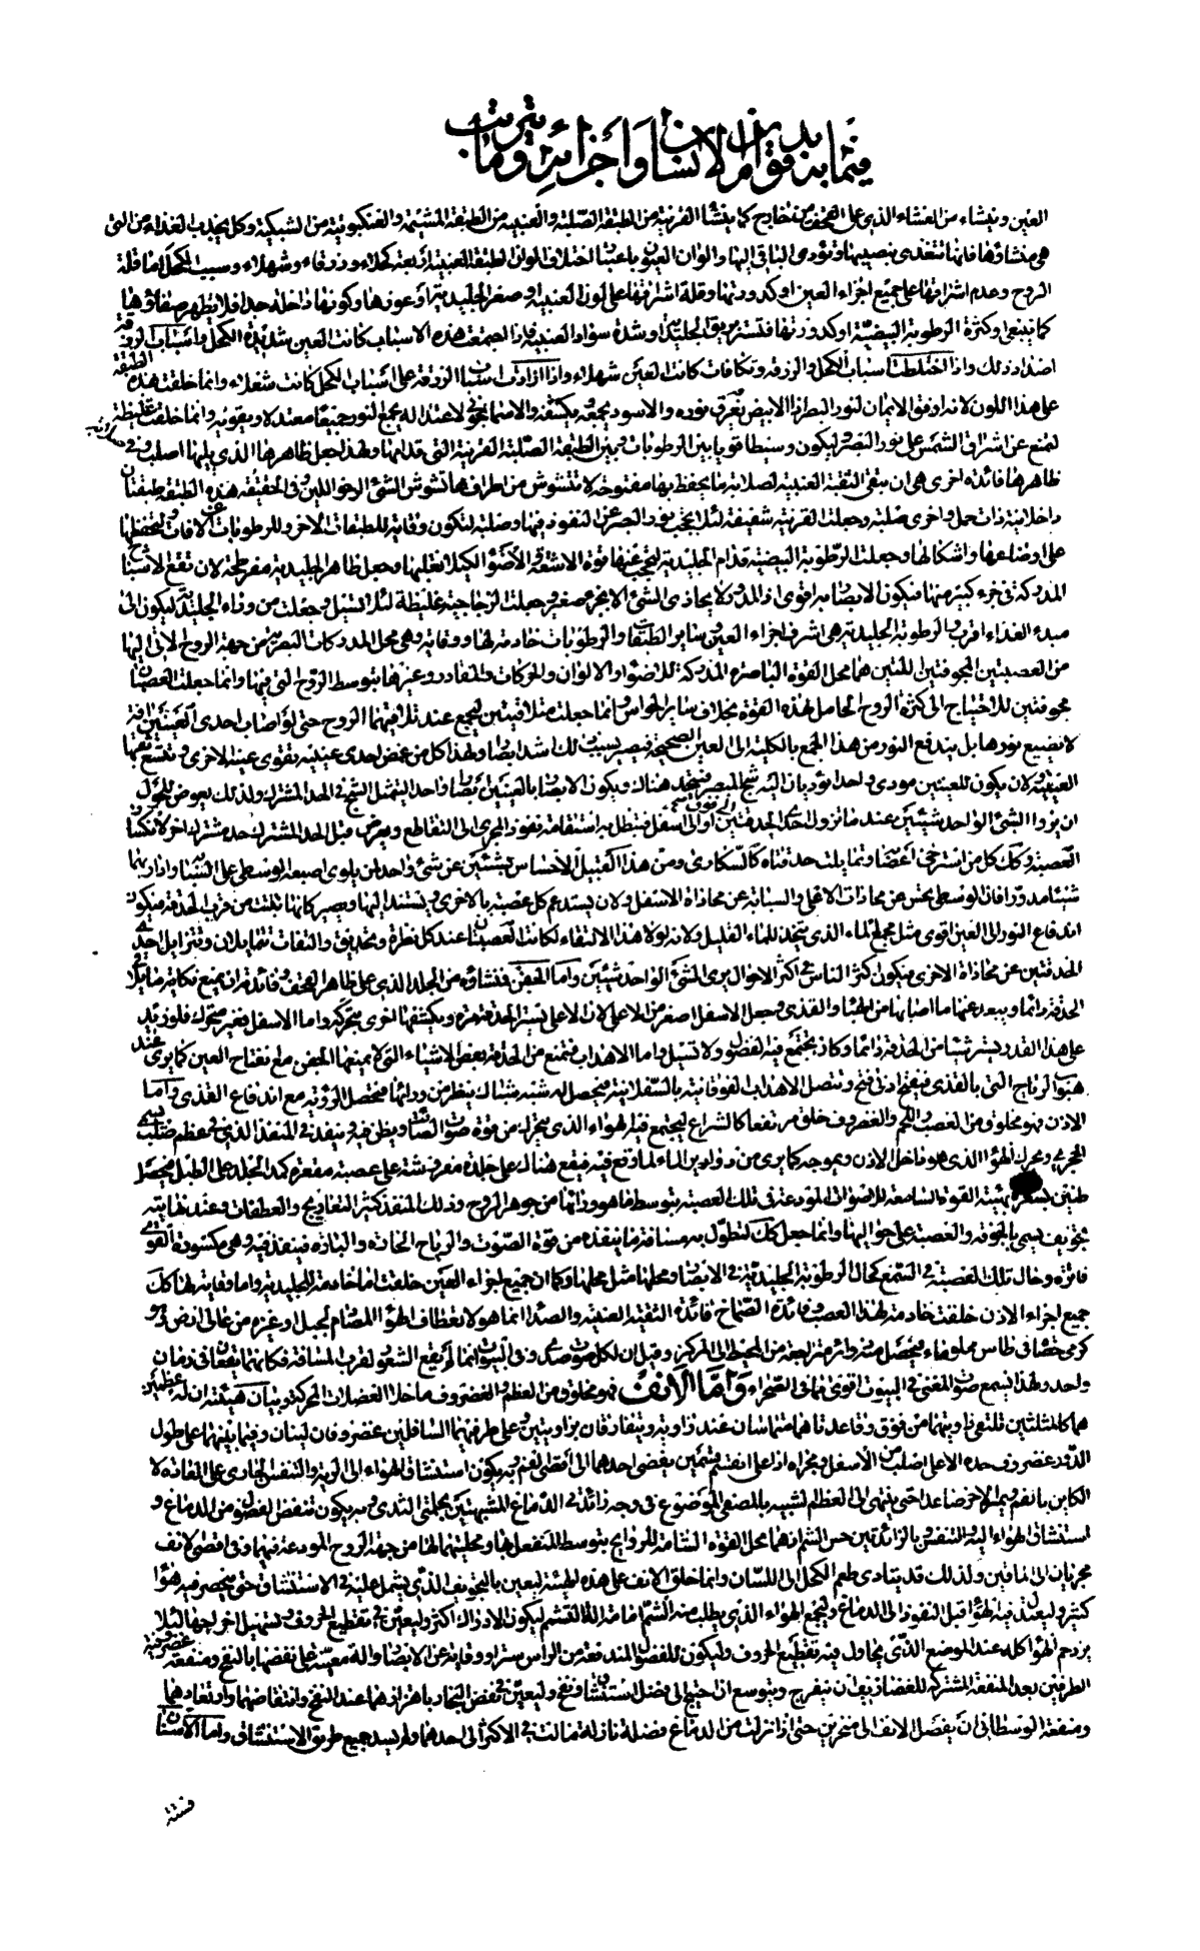 فيما به بدن قوام الانسان واجزائه وما يترتب
العين وينشاء من الغشاء الذي على القحف من خارج كما ينشأ القرنية من الطبقة الصلبة والعنبية من الطبقة المشيمة والعنكبوتية من الشبكية وكل يجذب الغذاء من التي
هي منشاؤها فانها تتغذى بنصيبها وتؤدى الباقى اليها والوان العيون باعتبار اختلاف الوان الطبقة العنبية اربعة كحلاء وزرقاء وشهلاء وسبب الكحل اما قلة
الروح وعدم اشراقها على جميع اجزاء العين او كدورتها وقلة اشراقها على لون العنبية او صغر الجليدية او غورها وكونها داخلة جدا فلا يظهر صفاؤها
كما ينبغى او كثرة الرطوبة البيضية او كدورتها فتستر بريق الجليدية او شدة سواد العنبية فاذا اجتمعت هذه الاسباب كانت العين شديدة الكحل واسباب الزرقة
اضداد ذلك واذا اختلطت اسباب الكحل والزرقة وتكافات كانت العين شهلاء واذا زادت اسباب الزرقة على اسباب الكحل كانت شعلاء وانما خلقت هذه الطبقة
على هذا اللون لانه اوفق الالوان لنور البصر اذ الابيض يفرق نوره والاسود يجمعه ويكثفه والاسمانجونى لاعتداله يجمع النور جمعا معتدلا ويقويه وانما خلقت غليظة
لتمنع عن اشراق الشمس على نور البصر وليكون وسيطا قويا بين الرطوبات وبين الطبقة الصلبة القرنية التى قدامها ولهذا جعل ظاهرها الذي يليها اصلب وفى صلابة
ظاهرها فائدة اخرى هى ان يبقى الثقبة العنبية لصلابة ما يحفظ بها مفتوحة لا تتشوش من اطرافها تشوش الشئ الرخو اللين وفى الحقيقة هذه الطبقة طبقتان
داخلانية ذات خمل واخرى صلبة وجعلت القرنية شفيفة لئلا يحجب نور البصر عن النفوذ فيها وصلبة لتكون وقاية للطبقات الاخر وللرطوبات عن الافات ولتحفظها
على اوضاعها واشكالها وجعلت الرطوبة البيضية قدام الجليدية لتحجب عنها قوة الاشعة والاضواء لكيلا يغلبها وجعل ظاهر الجليدية مفرطحة لان تقع الاشباح
المدركة فى جزء كبير منها فيكون الابصار به اقوى اذ المدور لا يحاذى الشئ الا بجزء صغير وجعلت الزجاجية غليظة لئلا تسيل وجعلت من وراء الجليدية ليكون الى
مبدء الغذاء اقرب والرطوبة الجليدية هى اشرف اجزاء العين وساير الطبقات والرطوبات خادمة لها ووقاية وهى محل المدركات البصرية من جهة الروح الآتى اليها
من العصبتين المجوفتين اللتين هما محل القوة الباصرة المدركة للاضواء والالوان والحركات والمقادير وغيرها بتوسط الروح التى فيها وانما جعلت العصبتان
مجوفتين للاحتياج الى كثرة الروح الحامل لهذه القوة بخلاف ساير الحواس وانما جعلت متلاقيتين ليجمع عند تلاقيهما الروح حتى لو اصاب احدى العينين افة
لا يضيع نورها بل يندفع النور من هذا المجمع بالكلية الى العين الصحيحة فيصير بسبب ذلك اشد ابصارا ولهذا كل من غمض احدى عينيه تقوى عينه الاخرى ويتسع ثقبها
العنبى ولان يكون للعينين مودى واحد تؤديان اليه شبح المبصر فيتحد هناك ويكون الابصار بالعينين ابصارا واحدا لتمثل الشبح فى الحد المشترك ولذلك يعرض للحول
ان يروا الشئ الواحد شيئين عند ما تزول احدى الحدقتين الى فوق او الى اسفل فتبطل به استقامة نفوذ المجرى الى التقاطع ويعرض قبل الحد المشترك حد مشترك اخر لانكسار
العصبة وكذلك كل من استرخى اعضاؤه وتمايلت حدقتاه كالسكارى ومن هذا القبيل الاحساس بشيئين عن شئ واحد لمن يلوى اصبعه الوسطى على السبابة وادار بهما
شيئا مدورا فان الوسطى يحس عن محاذات الاعلى والسبابة عن محاذاة الاسفل ولان يستدعم كل عصبة بالاخرى ويستند اليها ويصير كانها نبتت من قرب الحدقة فيكون
اندفاع النور الى العين اقوى مثل مجمع الماء الذى يتخذ للماء القليل ولانه لولا هذا الالتقاء لكانت العصبتان عند كل نظرة وتحديق والتفات تتمايلان وتتزايل احدى
الحدقتين عن محاذاة الاخرى فيكون اكثر الناس فى اكثر الاحوال يرى الشئ الواحد شيئين واما الجفن فمنشاؤه من الجلد الذى على ظاهر القحف وفائدته ان يمنع نكاية ما يلاقى
الحدقة دائما ويبعد عنها ما اصابها من الهباء والقذى وجعل الاسفل اصغر من الاعلى لان الاعلى يستر الحدقة مرة ويكشفها اخرى بتحركه واما الاسفل فغير متحرك فلو زيد
على هذا القدر يستر شيئا من الحدقة دائما وكان يجتمع فيه الفضول ولا تسيل واما الاهداب فتمنع من الحدقة بعض الاشياء التى لا يمنعها الجفن مع انفتاح العين كما يرى عند
هبوب الرياح التى بالقذى فيفتح ادنى فتح وتتصل الاهداب الفوقانية بالسفلانية فيحصل له شبه شباك ينظر من ورائها فتحصل الرؤية مع اندفاع القذى واما
الاذن فهو مخلوق من العصب واللحم والغضروف خلق مرتفعا كالشراع ليجتمع فيه الهواء الذى يتحرك من قوة صوت الصائت ويطن فيه وينفذ فى المنفذ الذى فى عظم صلب يسمى
الحجرى ويحرك الهواء الذى هو داخل الاذن ويموجه كما يرى من دواير الماء لما وقع فيه فيقع هناك على جلدة مفروشة على عصبة مقعرة كمد الجلد على الطبل فيحصل
طنين بهيئة القوة السامعة للاصوات المودعة فى تلك العصبة بتوسط ما هو وراءها من جوهر الروح وذلك المنفذ كثير التعاويج والعطفات وعند نهايته
تجويف يسمى بالجوفة والعصبة على حواليها وانما جعل كذلك لتطول به مسافة ما ينفذه من قوة الصوت والرياح الحادة والباردة فينفذ فيه وهى مكسورة القوى
فاترة وحال تلك العصبة فى السمع كحال الرطوبة الجليدية فى الابصار ومحلها مثل محلها وكما ان جميع اجزاء العين خلقت اما خادمة للجليدية واما وقاية لها كذلك
جميع اجزاء الاذن خلقت خادمة لهذا العصب وفائدة الصماخ فائدة الثقبة العنبية والصدا انما هو لانعطاف الهواء المصادم لجبل وغيره من عالى ارض
كرمى حصاة فى طاس مملو ماء فيحصل منه دائرة متراجعة من المحيط الى المركز وقيل ان لكل صوت صدى وفى البيوت انما لم يقع الشعور لقرب المسافة فكانهما يقعان فى زمان
واحد ولهذا يسمع صوت المغنى فى البيوت اقوى مما فى الصحراء واما الانف فهو مخلوق من العظم والغضروف ما خلا العضلات المحركة وبيان هيئته ان له عظمين
هما كالمثلثين تلتقى زاويتهما من فوق وقاعدتاهما تتماسان عند زاوية ويتفارقان بزاويتين وعلى طرفيهما السافلين غضروفان لينان وفيما بينهما على طول
الدرز غضروف حده الاعلى اصلب من الاسفل ومجراه اذا علا انقسم قسمين يفضى احدهما الى اقصى الفم وبه يكون استنشاق الهواء الى الرية والتنفس الجارى على العادة لا
الكاين بالفم ويمر الاخر صاعدا حتى ينتهى الى العظم الشبيه بالمصفى الموضوع فى وجه زائدتى الدماغ المشبهتين بحلمتى الثدى وبه يكون تنفض الفضول من الدماغ و
استنشاق الهواء اليه والتنفس وبالزائدتين حس الشم اذ هما محل القوة الشامة للروايح بتوسط المنفعل بها ومحليتهما لها من جهة الروح المودعة فيهما وفى اقصى الانف
مجريان الى الماقين ولذلك قد يتادى طعم الكحل الى اللسان وانما خلق الانف على هذه الهيئة ليعين بالتجويف الذى يشتمل عليه فى الاستنشاق حتى ينحصر فيه هواء
كثير وليعتدل فيه الهواء قبل النفوذ الى الدماغ وليجمع الهواء الذى يطلب منه الشم امام الة التشمم ليكون الادراك اكثر وليعين فى تقطيع الحروف وتسهيل اخراجها لئلا
يزدحم الهواء كله عند الموضع الذى يحاول فيه تقطيع الحروف وليكون للفضول المندفعة من الراس سترا ووقاية عن الابصار والة معينة على نفضها بالنفخ ومنفعة غضروفية
الطرفين بعد المنفعة المشتركة للغضاريف ان ينفرج ويتوسع ان احتيج الى فضل استنشاق ونفخ وليعين فى نفض البخار باهتزازهما عند النفخ وانتفاضهما وارتعادهما
ومنفعة الوسطانى ان يفصل الانف الى منخرين حتى اذا نزلت من الدماغ فضلة نازلة مالت فى الاكثر الى احدهما ولم يسد جميع طريق الاستنشاق واما الاسنان